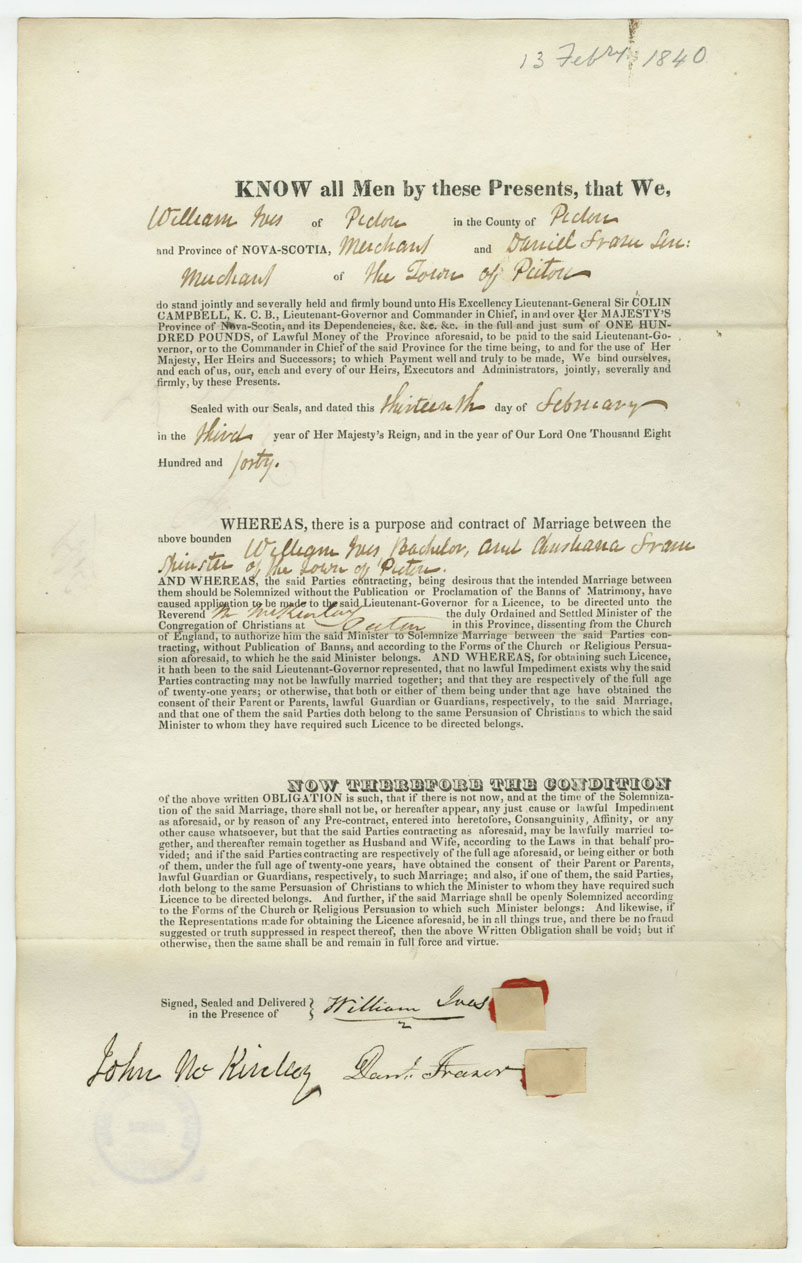 13 Febry 1840
KNOW all Men by these Presents, that We,
William Ives of Pictou in the County of Pictou
and Province of NOVA-SCOTIA, Merchant and Daniel Fraser Sen:
Merchant of the Town of Pictou
do stand jointly and severally held and firmly bound unto His Excellency Lieutenant-General Sir COLIN
CAMPBELL, K. C. B., Lieutenant-Governor and Commander in Chief, in and over Her MAJESTY'S
Province of Nova-Scotia, and its Dependencies, &c. &c. &c. in the full and just sum of ONE HUN-
DRED POUNDS, of Lawful Money of the Province aforesaid, to be paid to the said Lieutenant-Go-
vernor, or to the Commander in Chief of the said Province for the time being, to and for the use of Her
Majesty, Her Heirs and Successors; to which Payment well and truly to be made, We bind ourselves,
and each of us, our, each and every of our Heirs, Executors and Administrators, jointly, severally and
firmly, by these Presents.
Sealed with our Seals, and dated this thirteenth day of February
in the third year of Her Majesty's Reign, and in the year of Our Lord One Thousand Eight
Hundred and forty.
WHEREAS, there is a purpose and contract of Marriage between the
above bounden William Ives Bachelor, and Fraser
Spinster of the Town of Pictou.
AND WHEREAS, the said Parties contracting, being desirous that the intended Marriage between
them should be Solemnized without the Publication or Proclamation of the Banns of Matrimony, have
caused application to be made to the said Lieutenant-Governor for a Licence, to be directed unto the
Reverend Mr McKinlay the duly Ordained and Settled Minister of the
Congregation of Christians at Pictou in this Province, dissenting from the Church
of England, to authorize him the said Minister to Solemnize Marriage between the said Parties con-
tracting, without Publication of Banns, and according to the Forms of the Church or Religious Persua-
sion aforesaid, to which he the said Minister belongs. AND WHEREAS, for obtaining such Licence,
it hath been to the said Lieutenant-Governor represented, that no lawful Impediment exists why the said
Parties contracting may not be lawfully married together; and that they are respectively of the full age
of twenty-one years; or otherwise, that both or either of them being under that age have obtained the
consent of their Parent or Parents, lawful Guardian or Guardians, respectively, to the said Marriage,
and that one of them the said Parties doth belong to the same Persuasion of Christians to which the said
Minister to whom they have required such Licence to be directed belongs.
NOW THEREFORE THE CONDITION
of the above written OBLIGATION is such, that if there is not now, and at the time of the Solemniza-
tion of the said Marriage, there shall not be, or hereafter appear, any just cause or lawful Impediment
as aforesaid, or by reason of any Pre-contract, entered into heretofore, Consanguinity, Affinity, or any
other cause whatsoever, but that the said Parties contracting as aforesaid, may be lawfully married to-
gether, and thereafter remain together as Husband and Wife, according to the Laws in that behalf pro-
vided; and if the said Parties contracting are respectively of the full age aforesaid, or being either or both
of them, under the full age of twenty-one years, have obtained the consent of their Parent or Parents,
lawful Guardian or Guardians, respectively, to such Marriage; and also, if one of them, the said Parties,
doth belong to the same Persuasion of Christians to which the Minister to whom they have required such
Licence to be directed belongs. And further, if the said Marriage shall be openly Solemnized according
to the Forms of the Church or Religious Persuasion to which such Minister belongs: And likewise, if
the Representations made for obtaining the Licence aforesaid, be in all things true, and there be no fraud
suggested or truth suppressed in respect thereof, then the above Written Obligation shall be void; but if
otherwise, then the same shall be and remain in full force and virtue.
Signed, Sealed and Delivered
in the Presence of
William Ives
John McKinlay Danl. Fraser